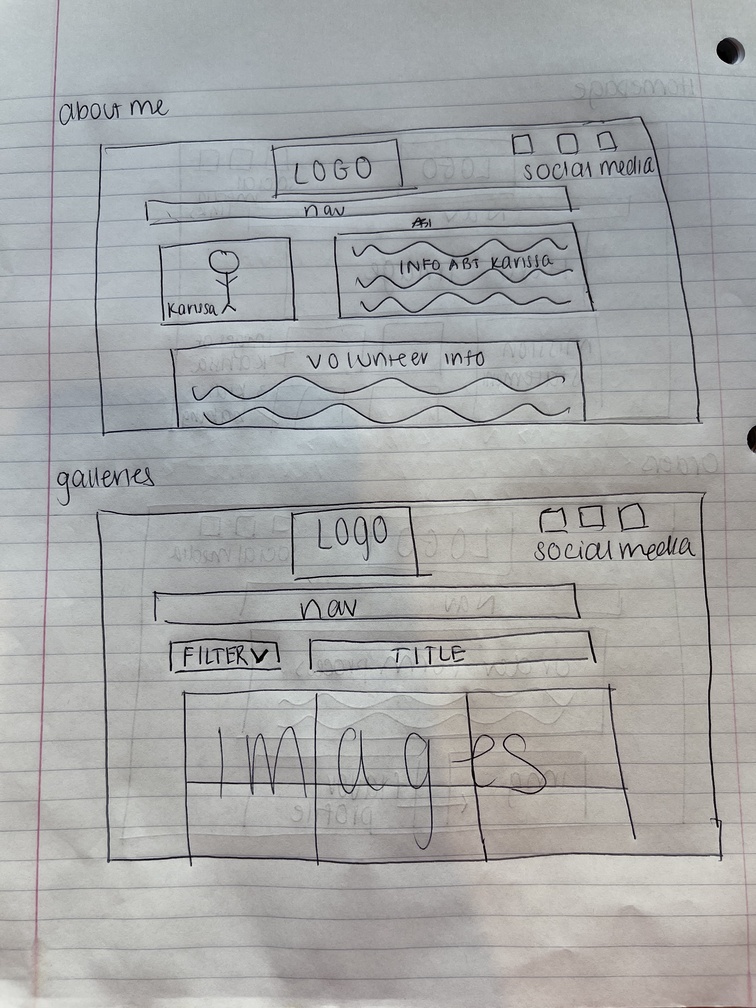 about me
LOGO
social media
nav
INFO ABT Karissa
Karissa
volunteer info
galleries
LOGO
social media
nav
FILTER
TITLE
images